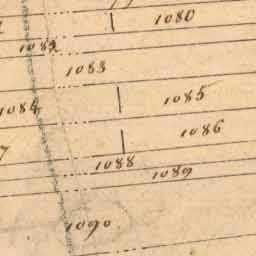 1080
1082
1083
1084
1085
1086
1088
1089
1090